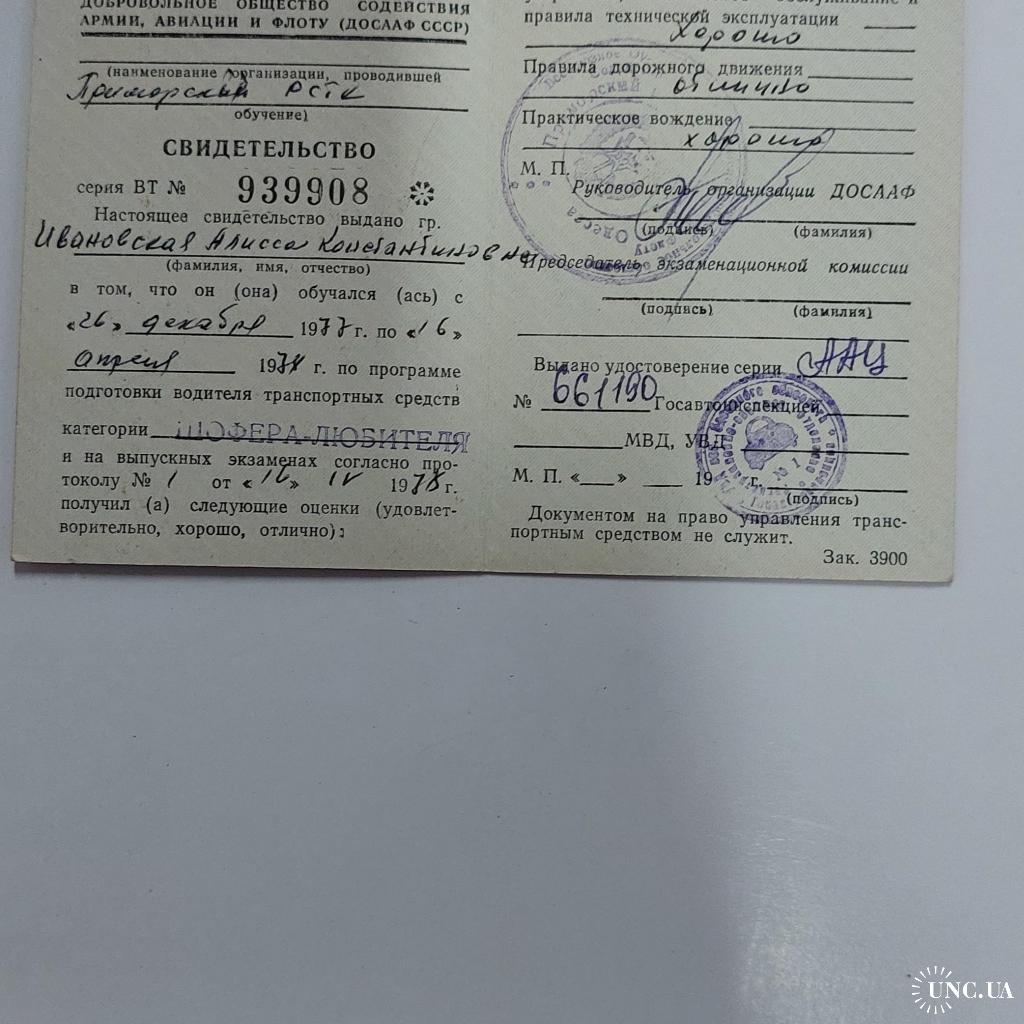 ДОБРОВОЛЬНОЕ ОБЩЕСТВО СОДЕЙСТВИЯ
АРМИИ, АВИАЦИИ И ФЛОТУ (ДОСААФ СССР)
(наименование организации, проводившей
Приморский РСТК
обучение)
СВИДЕТЕЛЬСТВО
серия ВТ № 939908
Настоящее свидетельство выдано гр.
Ивановская Алисса Константиновна
(фамилия, имя, отчество)
в том, что он (она) обучался (ась) с
«26» декабря 1977 г. по «16»
апреля 1978 г. по программе
подготовки водителя транспортных средств
категории ШОФЕРА-ЛЮБИТЕЛЯ
и на выпускных экзаменах согласно про-
токолу № 1 от «16» IV 1978 г.
получил (а) следующие оценки (удовлет-
ворительно, хорошо, отлично):
правила технической эксплуатации
хорошо
Правила дорожного движения
отлично
Практическое вождение
хорошо
М. П.
Руководитель организации ДОСААФ
(подпись) (фамилия)
Председатель экзаменационной комиссии
(подпись) (фамилия)
Выдано удостоверение серии ААЦ
№ 661190 Госавтоинспекцией
МВД, УВД
М. П. «__» __ 19 г.
(подпись)
Документом на право управления транс-
портным средством не служит.
Зак. 3900
UNC.UA